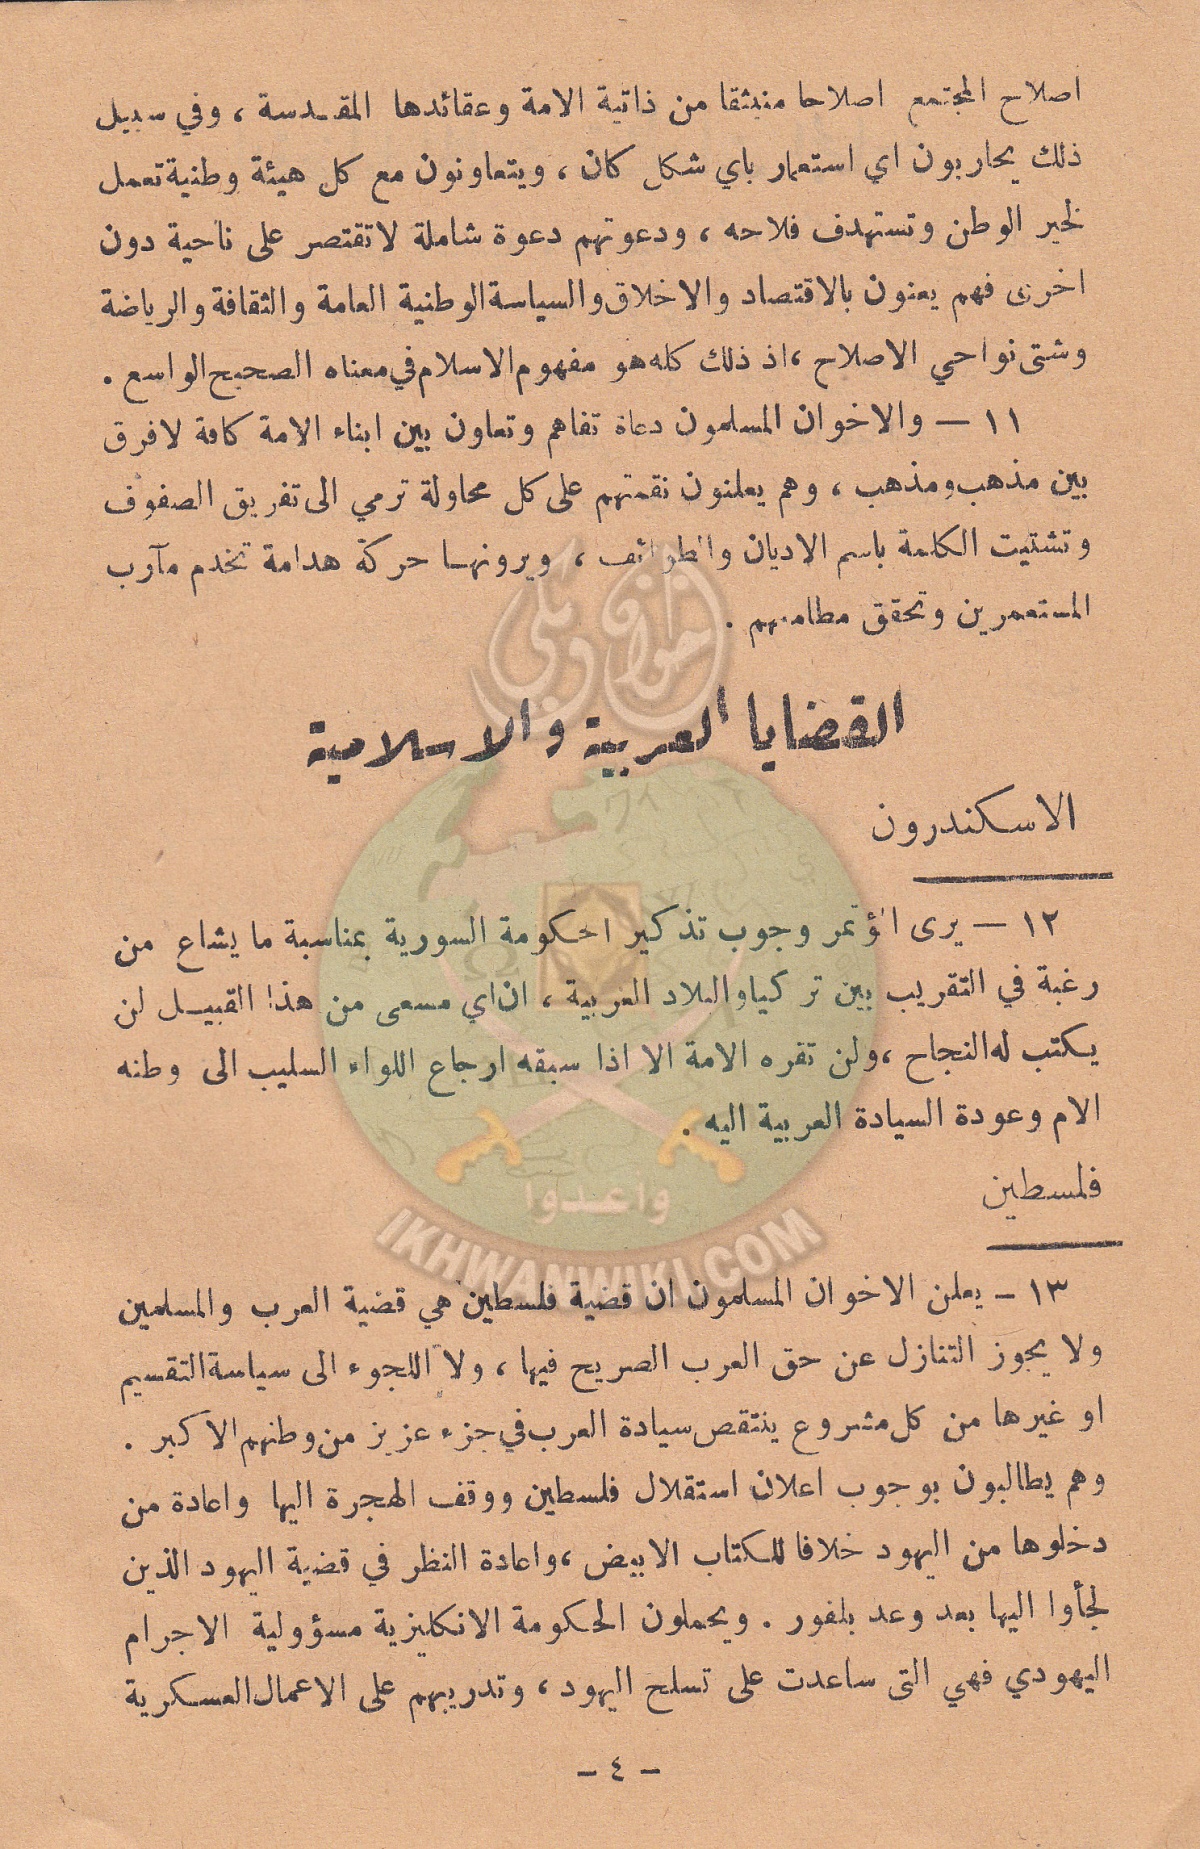 اصلاح المجتمع اصلاحا منبثقا من ذاتية الامة وعقائدها المقدسة ، وفي سبيل
ذلك يحاربون اي استعمار باي شكل كان ، ويتعاونون مع كل هيئة وطنية تعمل
لخير الوطن وتستهدف فلاحه ، ودعوتهم دعوة شاملة لا تقتصر على ناحية دون
اخرى فهم يعنون بالاقتصاد والاخلاق والسياسة الوطنية العامة والثقافة والرياضة
وشتى نواحي الاصلاح ، اذ ذلك كله هو مفهوم الاسلام في معناه الصحيح الواسع .
١١ — والاخوان المسلمون دعاة تفاهم وتعاون بين ابناء الامة كافة لا فرق
بين مذهب ومذهب ، وهم يعلنون نقمتهم على كل محاولة ترمي الى تفريق الصفوف
وتشتيت الكلمة باسم الاديان والطوائف ، ويرونها حركة هدامة تخدم مآرب
المستعمرين وتحقق مطامعهم .
القضايا العربية والاسلامية
الاسكندرون
١٢ — يرى المؤتمر وجوب تذكير الحكومة السورية بمناسبة ما يشاع من
رغبة في التقريب بين تركيا والبلاد العربية ، ان اي مسعى من هذا القبيل لن
يكتب له النجاح ، ولن تقره الامة الا اذا سبقه ارجاع اللواء السليب الى وطنه
الام وعودة السيادة العربية اليه .
واعدوا
فلسطين
IKHWANWIKI.COM
١٣ – يعلن الاخوان المسلمون ان قضية فلسطين هي قضية العرب والمسلمين
ولا يجوز التنازل عن حق العرب الصريح فيها ، ولا اللجوء الى سياسة التقسيم
او غيرها من كل مشروع ينتقص سيادة العرب في جزء عزيز من وطنهم الاكبر .
وهم يطالبون بوجوب اعلان استقلال فلسطين ووقف الهجرة اليها واعادة من
دخلوها من اليهود خلافا للكتاب الابيض ، واعادة النظر في قضية اليهود الذين
لجأوا اليها بعد وعد بلفور . ويحملون الحكومة الانكليزية مسؤولية الاجرام
اليهودي فهي التى ساعدت على تسلح اليهود ، وتدريبهم على الاعمال العسكرية
– ٤ –